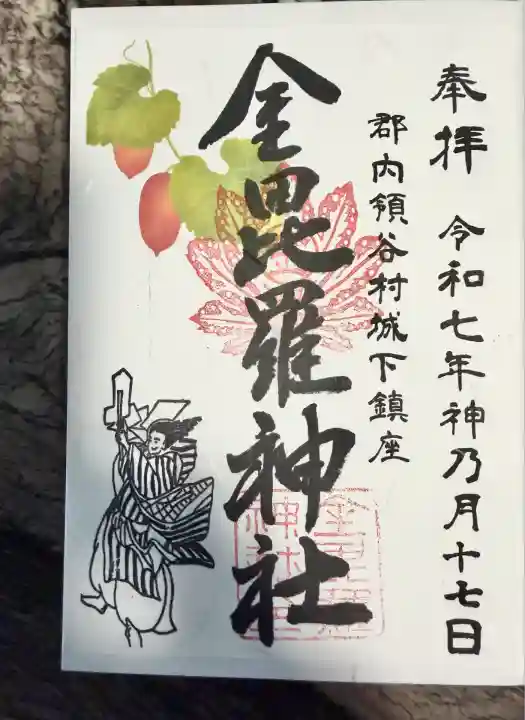 奉拝 令和七年神乃月十七日
郡内領谷村城下鎮座
金毘羅神社